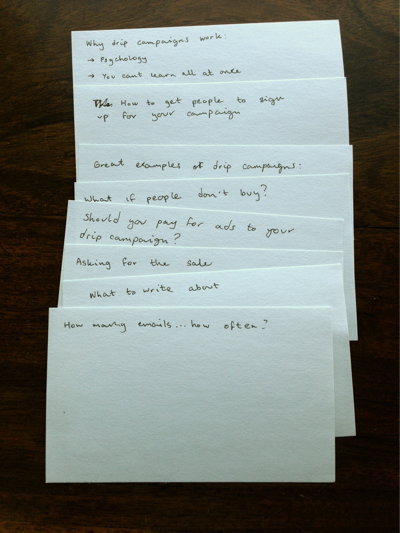 Why drip campaigns work:
→ Psychology
→ You cant learn all at once
How to get people to sign
up for your campaign
Great examples of drip campaigns:
What if people don't buy?
Should you pay for ads to your
drip campaign?
Asking for the sale
What to write about
How many emails... how often?